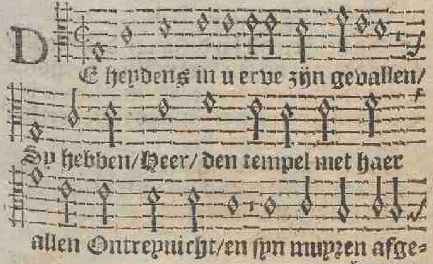 DE heydens in u erve zijn gevallen/
Sy hebben/Heer/den tempel met haer
allen Ontreynicht/en syn muyren afge=